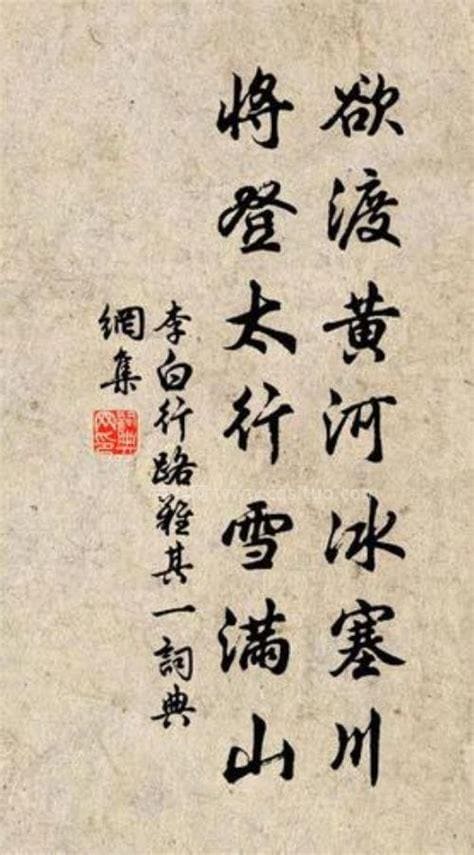 欲渡黄河冰塞川
将登太行雪满山
李白行路難其一詞典
網集